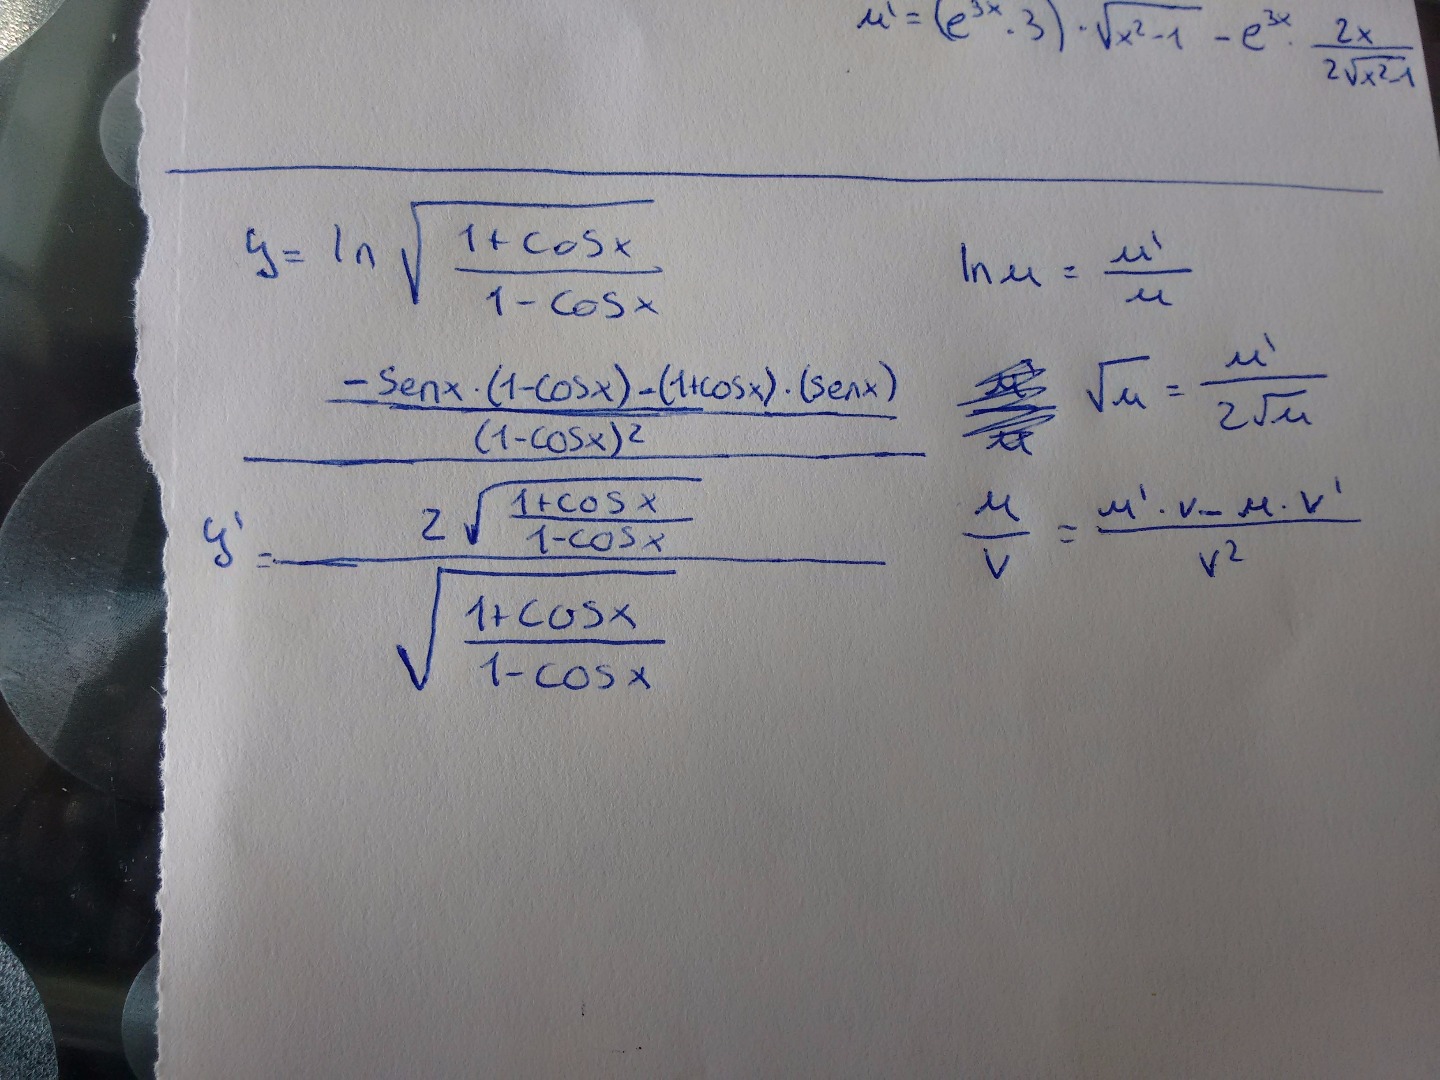 u' = (e^3x · 3) · √(x²-1) - e^3x · 2x / 2√(x²-1)
y = ln √((1+cosx) / (1-cosx))
ln u = u' / u
√u = u' / 2√u
u / v = (u' · v - u · v') / v²
y' = (((-senx · (1-cosx) - (1+cosx) · (senx)) / (1-cosx)²) / (2√((1+cosx) / (1-cosx)))) / √((1+cosx) / (1-cosx))